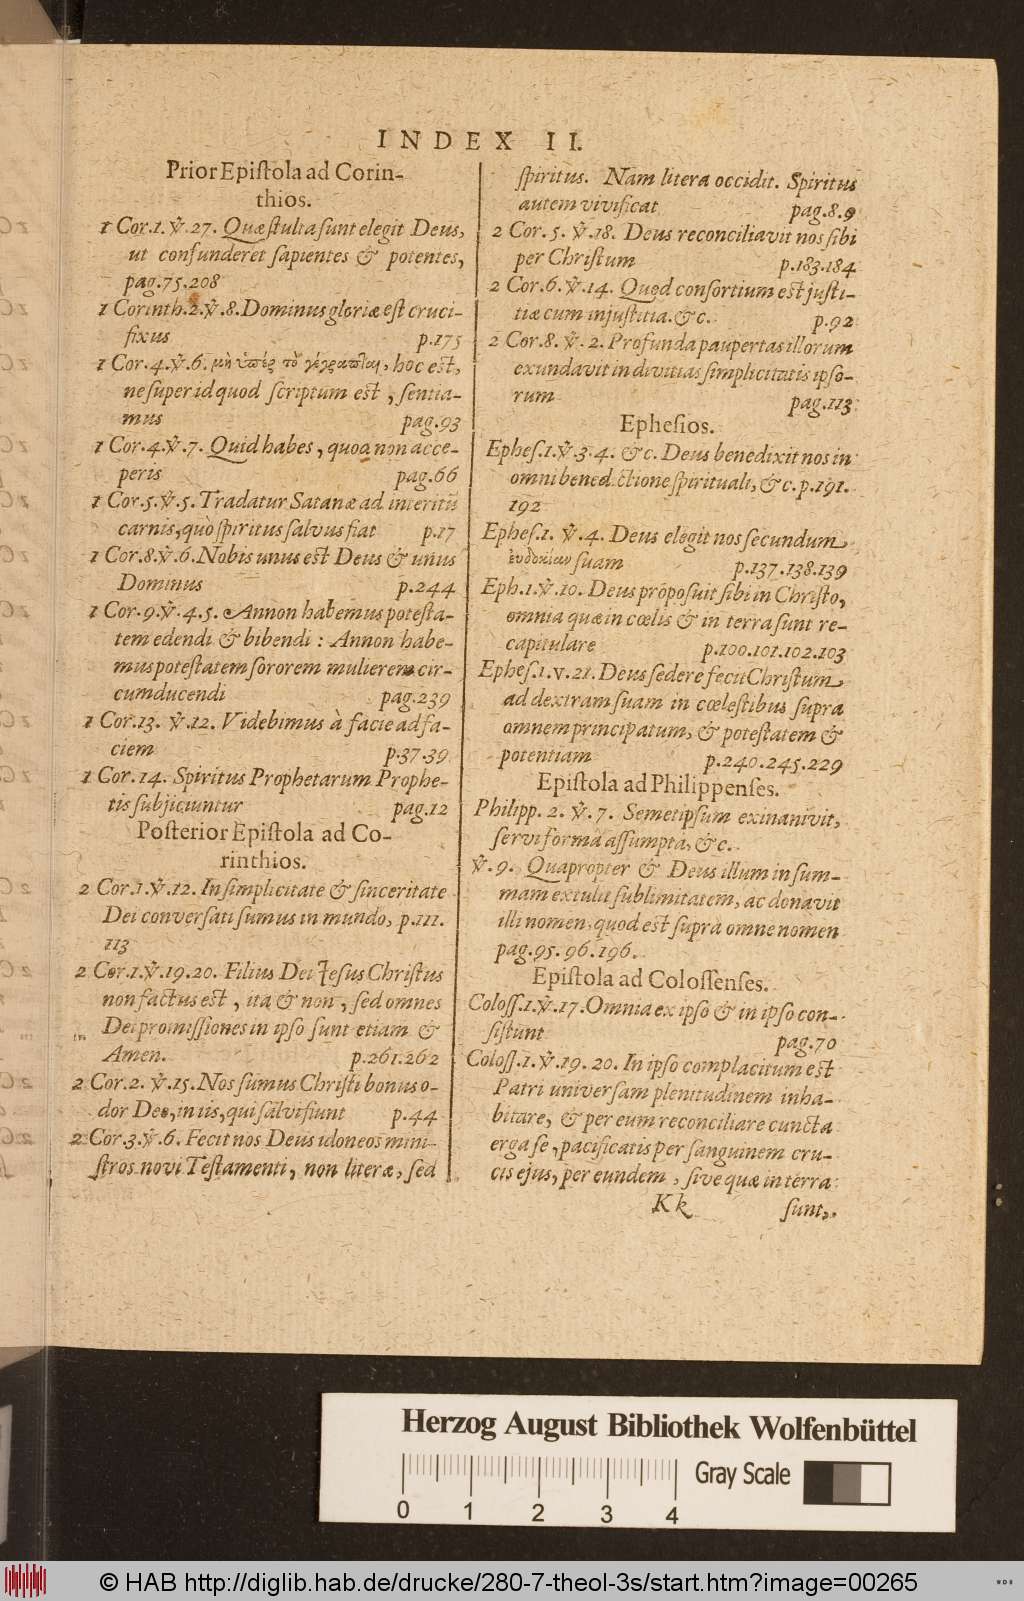 INDEX II.
Prior Epiſtola ad Corin-
thios.
1 Cor. 1. ℣. 27. Quæ ſtulta ſunt elegit Deus,
ut confunderet ſapientes & potentes,
pag. 75. 208
1 Corinth. 2. ℣. 8. Dominus gloriæ eſt cruci-
fixus p. 175
1 Cor. 4. ℣. 6. μὴ ὑπὲρ τὸ γέγραπται, hoc eſt,
ne ſuper id quod ſcriptum eſt, ſentia-
mus pag. 93
1 Cor. 4. ℣. 7. Quid habes, quod non acce-
peris pag. 66
1 Cor. 5. ℣. 5. Tradatur Satanæ ad interitũ
carnis, quò ſpiritus ſalvus fiat p. 17
1 Cor. 8. ℣. 6. Nobis unus eſt Deus & unus
Dominus p. 244
1 Cor. 9. ℣. 4. 5. Annon habemus poteſta-
tem edendi & bibendi: Annon habe-
mus poteſtatem ſororem mulierem cir-
cumducendi pag. 239
1 Cor. 13. ℣. 12. Videbimus à facie ad fa-
ciem p. 37. 39
1 Cor. 14. Spiritus Prophetarum Prophe-
tis ſubjiciuntur pag. 12
Poſterior Epiſtola ad Co-
rinthios.
2 Cor. 1. ℣. 12. In ſimplicitate & ſinceritate
Dei converſati ſumus in mundo, p. 111.
113
2 Cor. 1. ℣. 19. 20. Filius Dei Jeſus Chriſtus
non factus eſt, ita & non, ſed omnes
Dei promiſſiones in ipſo ſunt etiam &
Amen. p. 261. 262
2 Cor. 2. ℣. 15. Nos ſumus Chriſti bonus o-
dor Deo, in iis, qui ſalvi fiunt p. 44
2 Cor. 3. ℣. 6. Fecit nos Deus idoneos mini-
ſtros novi Teſtamenti, non literæ, ſed
ſpiritus. Nam litera occidit. Spiritus
autem vivificat pag. 8. 9
2 Cor. 5. ℣. 18. Deus reconciliavit nos ſibi
per Chriſtum p. 183. 184
2 Cor. 6. ℣. 14. Quod conſortium eſt juſti-
tiæ cum injuſtitia. &c. p. 92
2 Cor. 8. ℣. 2. Profunda paupertas illorum
exundavit in divitias ſimplicitatis ipſo-
rum pag. 113
Epheſios.
Epheſ. 1. ℣. 3. 4. &c. Deus benedixit nos in
omni bened ctione ſpirituali, &c. p. 191.
192
Epheſ. 1. ℣. 4. Deus elegit nos ſecundum
ἐυδοκίαν ſuam p. 137. 138. 139
Eph. 1. ℣. 10. Deus propoſuit ſibi in Chriſto,
omnia quæ in cœlis & in terra ſunt re-
capitulare p. 100. 101. 102. 103
Epheſ. 1. v. 21. Deus ſedere fecit Chriſtum
ad dextram ſuam in cœleſtibus ſupra
omnem principatum, & poteſtatem &
potentiam p. 240. 245. 229
Epiſtola ad Philippenſes.
Philipp. 2. ℣. 7. Semetipſum exinanivit,
ſervi forma aſſumpta, &c.
℣. 9. Quapropter & Deus illum in ſum-
mam extulit ſublimitatem, ac donavit
illi nomen, quod eſt ſupra omne nomen
pag. 95. 96. 196.
Epiſtola ad Coloſſenſes.
Coloſſ. 1. ℣. 17. Omnia ex ipſo & in ipſo con-
ſiſtunt pag. 70
Coloſſ. 1. ℣. 19. 20. In ipſo complacitum eſt
Patri univerſam plenitudinem inha-
bitare, & per eum reconciliare cuncta
erga ſe, pacificatis per ſanguinem cru-
cis ejus, per eundem, ſive quæ in terra
Kk ſunt,
Herzog August Bibliothek Wolfenbüttel
Gray Scale
0 1 2 3 4
© HAB http://diglib.hab.de/drucke/280-7-theol-3s/start.htm?image=00265